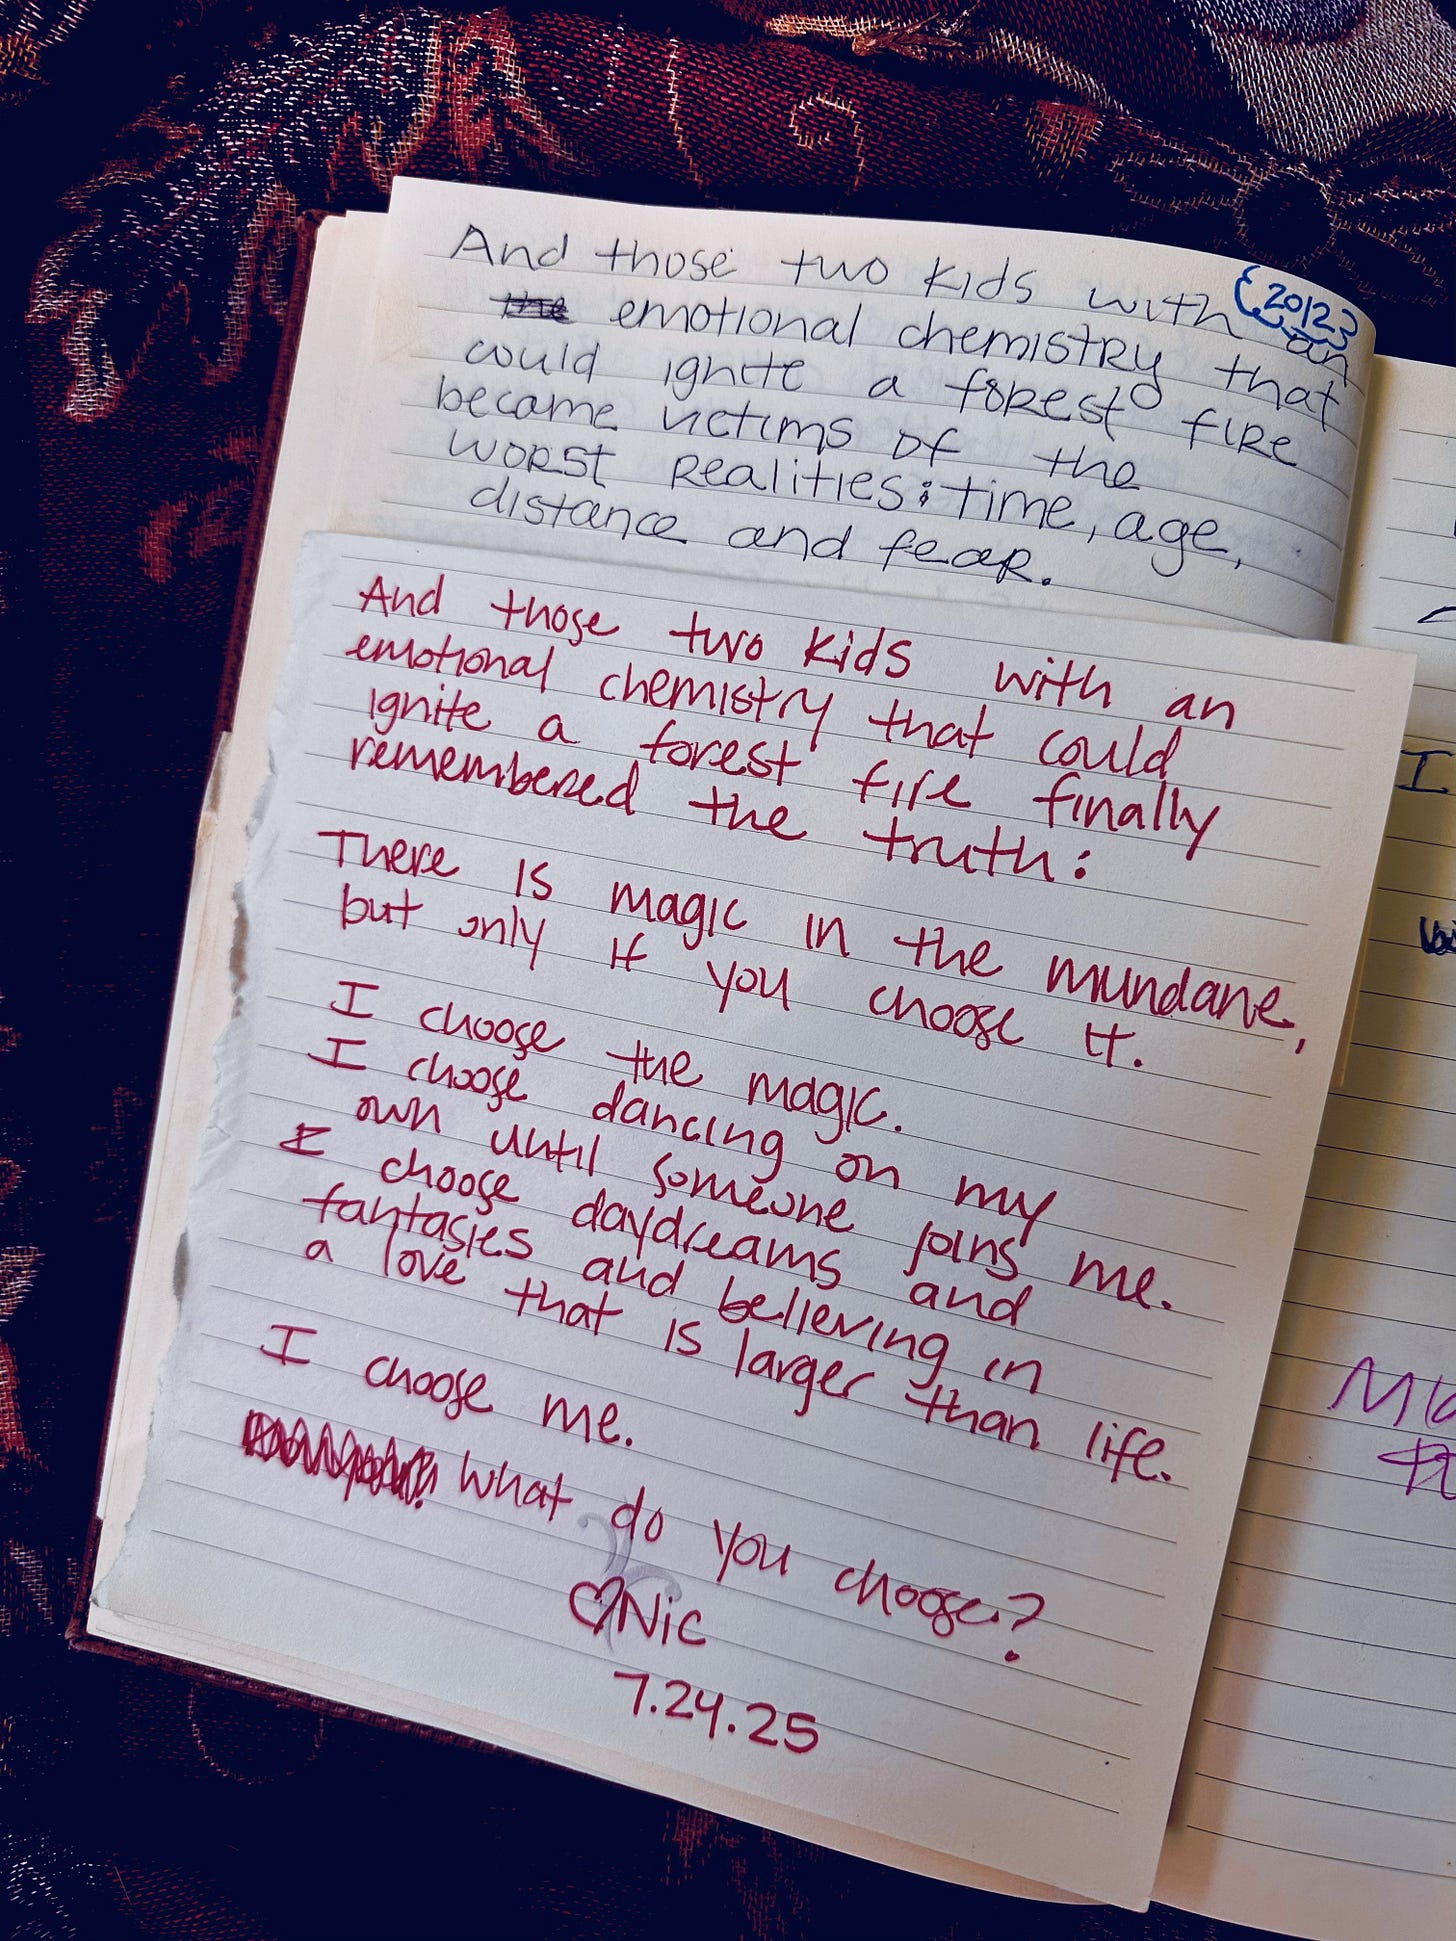 {2012}
And those two kids with an
the emotional chemistry that
could ignite a forest fire
became victims of the
worst realities: time, age,
distance and fear.
And those two kids with an
emotional chemistry that could
ignite a forest fire finally
remembered the truth:
There is magic in the mundane,
but only if you choose it.
I choose the magic.
I choose dancing on my
own until someone joins me.
I choose daydreams and
fantasies and believing in
a love that is larger than life.
I choose me.
What do you choose?
♡Nic
7.24.25
I